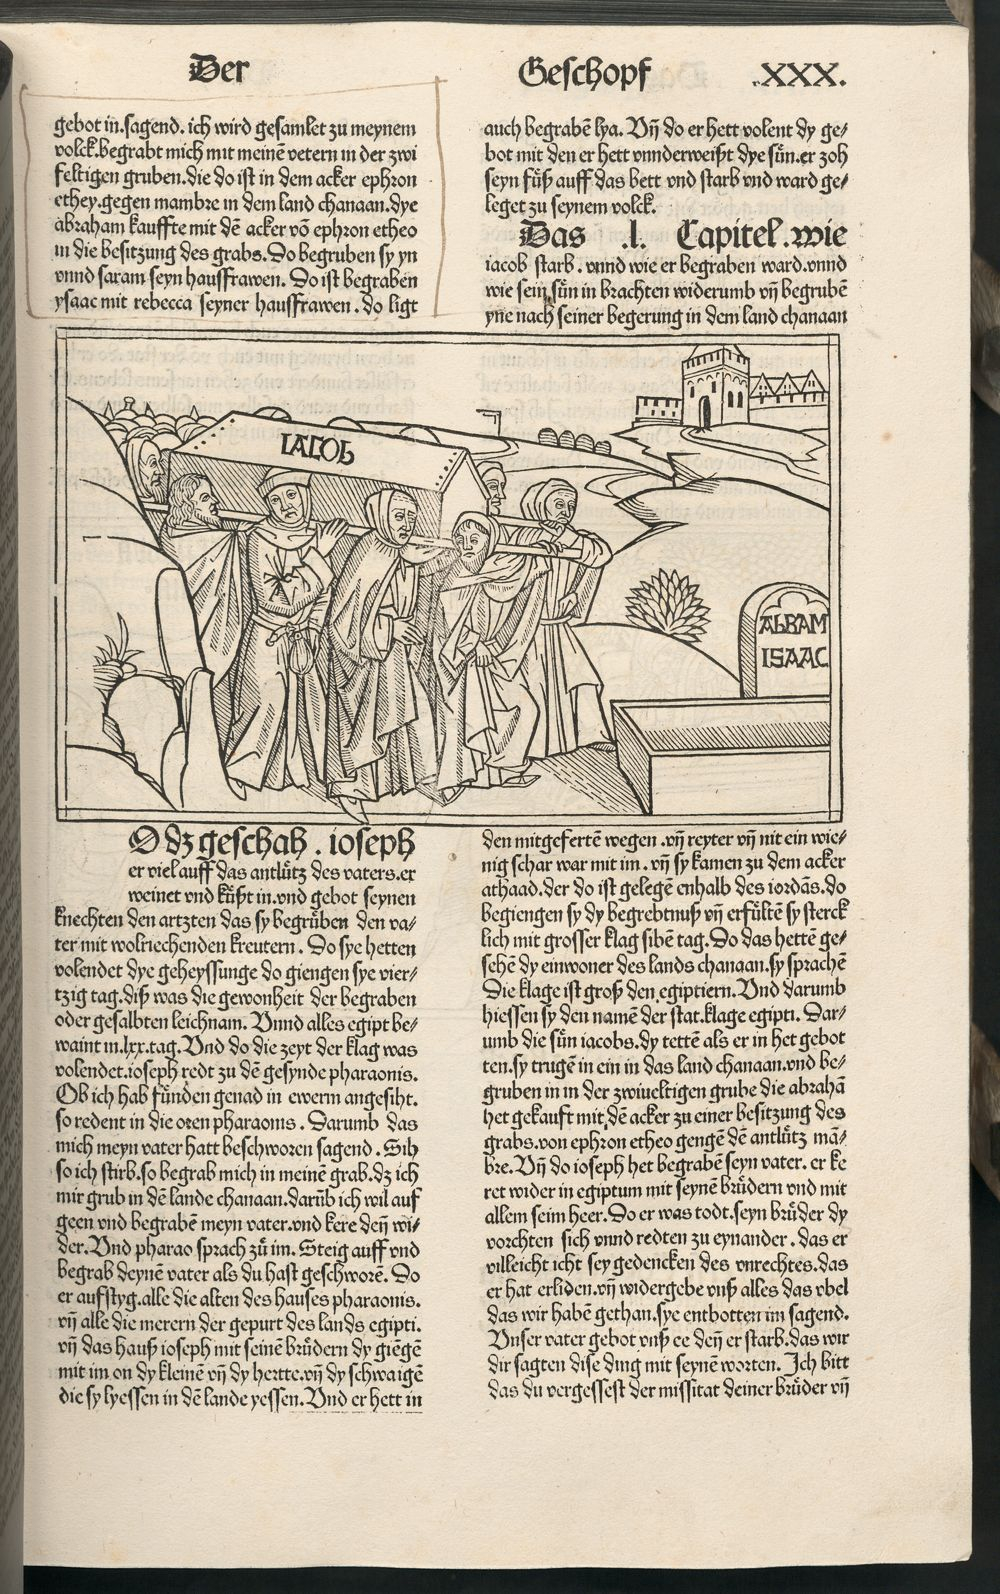 Der Geschopf .XXX.
gebot in.sagend. ich wird gesamlet zu meynem
volck.begrabt mich mit meinē vetern in der zwi
feltigen gruben.die do ist in dem acker ephron
ethey.gegen mambre in dem land chanaan.dye
abraham kauffte mit dē acker võ ephron etheo
in die besitzung des grabs. Do begruben sy yn
vnnd saram seyn haussfrawen. Do ist begraben
ysaac mit rebecca seyner haussfrawen. do ligt
auch begrabē lya. Vn̄ do er hett volent dy ge/
bot mit den er hett vnnderweißt dye sün̄.er zoh
seyn fuͤß auff das bett vnd starb vnd ward ge/
leget zu seynem volck.
Das .l. Capitel. wie
iacob starb. vnnd wie er begraben ward.vnnd
wie sein sün in brachten widerumb vn̄ begrubē
yne nach seiner begerung in dem land chanaan
IACOb
AbRAM
ISAAC
O dz geschah. ioseph
er viel auff das antlütz des vaters.er
weinet vnd küßt in.vnd gebot seynen
knechten den artzten das sy begrüben den va/
ter mit wolriechenden kreutern. Do sye hetten
volendet dye geheyssunge do giengen sye vier/
tzig tag.diß was die gewonheit der begraben
oder gesalbten leichnam. Vnnd alles egipt be/
waint in.lxx.tag. Vnd do die zeyt der klag was
volendet.ioseph redt zu dē gesynde pharaonis.
Ob ich hab fünden genad in ewerm angesiht.
so redent in die oren pharaonis. Darumb das
mich meyn vater hatt beschworen sagend. Sih
so ich stirb.so begrab mich in meinē grab.dz ich
mir grub in dē lande chanaan.darūb ich wil auf
geen vnd begrabē meyn vater.vnd kere deñ wi/
der. Vnd pharao sprach zů im. Steig auff vnd
begrab deynē vater als du hast geschworē. Do
er aufstyg.alle die alten des hauses pharaonis.
vn̄ alle die merern der gepurt des lands egipti.
vn̄ das hauß ioseph mit seinē brüdern dy giēgē
mit im on dy kleinē vn̄ dy hertte.vn̄ dy schwaigē
die sy lyessen in dē lande yessen. Vnd er hett in
den mitgefertē wegen.vn̄ reyter vn̄ nit ein wie/
nig schar war mit im. vn̄ sy kamen zu dem acker
athaad.der do ist gelegē enhalb des iordās.do
begiengen sy dy begrebtnuß vn̄ erfültē sy sterck
lich mit grosser klag sibē tag. Do das hettē ge/
sehē dy einwoner des lands chanaan.sy sprachē
Die klage ist groß den egiptiern. Vnd darumb
hiessen sy den namē der stat.klage egipti. Dar/
umb die sün iacobs.dy tettē als er in het gebot
ten.sy trugē in ein in das land chanaan.vnd be/
gruben in in der zwiueltigen grube die abrahā
het gekauft mit dē acker zu einer besitzung des
grabs.von ephron etheo gengē dē antlütz mā/
bre. Vn̄ do ioseph het begrabē seyn vater. er ke
ret wider in egiptum mit seynē brüdern vnd mit
allem seim heer. Do er was todt.seyn brüder dy
vorchten sich vnnd redten zu eynander. das er
villeicht icht sey gedencken des vnrechtes.das
er hat erliden.vn̄ widergebe vnß alles das vbel
das wir habē gethan.sye entbotten im sagend.
Vnser vater gebot vnß ee deñ er starb.das wir
dir sagten dise ding mit seynē worten. Ich bitt
das du vergessest der missitat deiner brüder vn̄